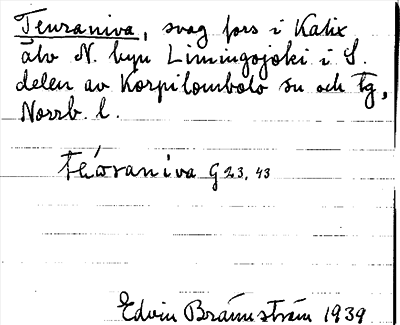 Teuraniva, svag fors i Kalix
älv N. byn Limingojoki i S.
delen av Korpilombolo sn och tg,
Norrb. l.
Teὀraniva G 23, 43
Edvin Brännström 1939